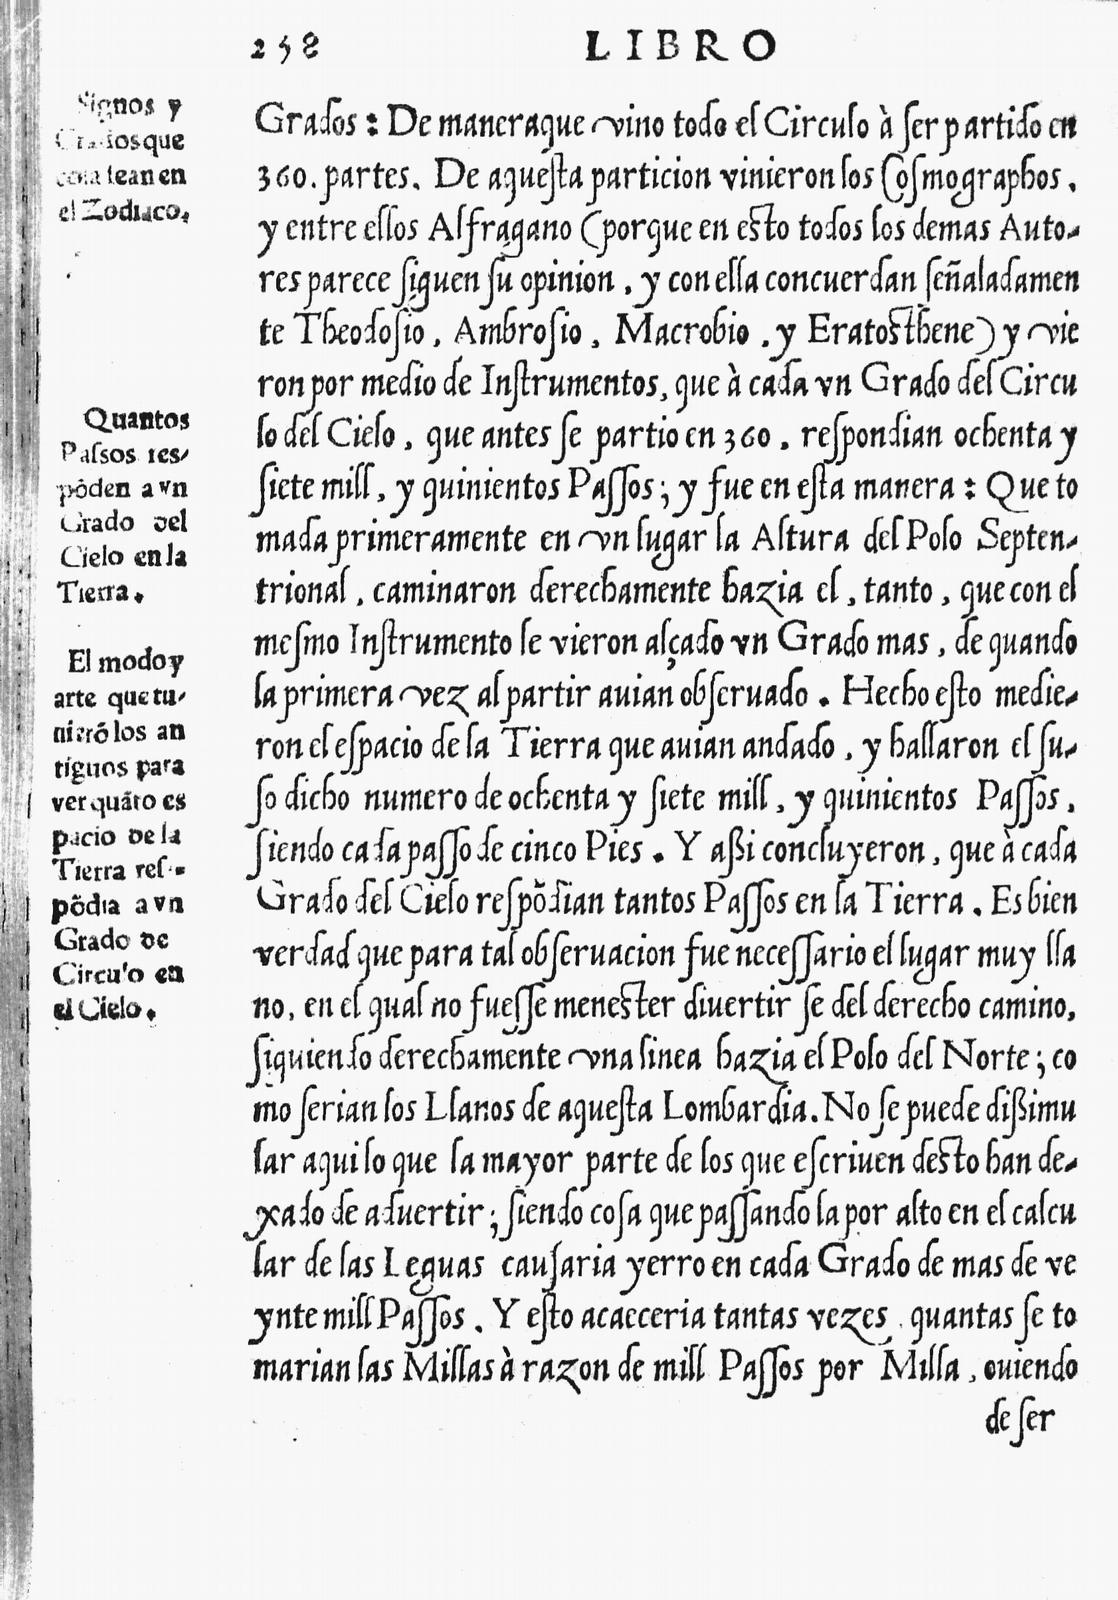 258 LIBRO
Signos y
Grados que
cotatean en
el Zodiaco.
Quantos
Passos res-
põden a vn
Grado del
Cielo en la
Tierra.
El modo y
arte que tu-
nieró los an
tiguos para
ver quãto es
pacio de la
Tierra res-
põdia a vn
Grado de
Circulo en
el Cielo.
Grados: De manera que vino todo el Circulo à ser partido en
360. partes. De aquesta particion vinieron los Cosmographos,
y entre ellos Alfragano (porque en esto todos los demas Auto-
res parece siguen su opinion, y con ella concuerdan señaladamen
te Theodosio, Ambrosio, Macrobio, y Eratosthene) y vie
ron por medio de Instrumentos, que à cada vn Grado del Circu
lo del Cielo, que antes se partio en 360, respondian ochenta y
siete mill, y quinientos Passos; y fue en esta manera: Que to
mada primeramente en vn lugar la Altura del Polo Septen-
trional, caminaron derechamente hazia el, tanto, que con el
mesmo Instrumento le vieron alçado vn Grado mas, de quando
la primera vez al partir auian obseruado. Hecho esto medie-
ron el espacio de la Tierra que auian andado, y hallaron el su-
so dicho numero de ochenta y siete mill, y quinientos Passos,
siendo cada passo de cinco Pies. Y aßi concluyeron, que à cada
Grado del Cielo respõdian tantos Passos en la Tierra. Es bien
verdad que para tal obseruacion fue necessario el lugar muy lla
no, en el qual no fuesse menester divertir se del derecho camino,
siguiendo derechamente vna linea hazia el Polo del Norte; co
mo serian los Llanos de aquesta Lombardia. No se puede dißimu
lar aqui lo que la mayor parte de los que escriuen desto han de-
xado de aduertir; siendo cosa que passandola por alto en el calcu
lar de las Leguas causaria yerro en cada Grado de mas de ve
ynte mill Passos. Y esto acaeceria tantas vezes, quantas se to
marian las Millas à razon de mill Passos por Milla, ouiendo
de ser